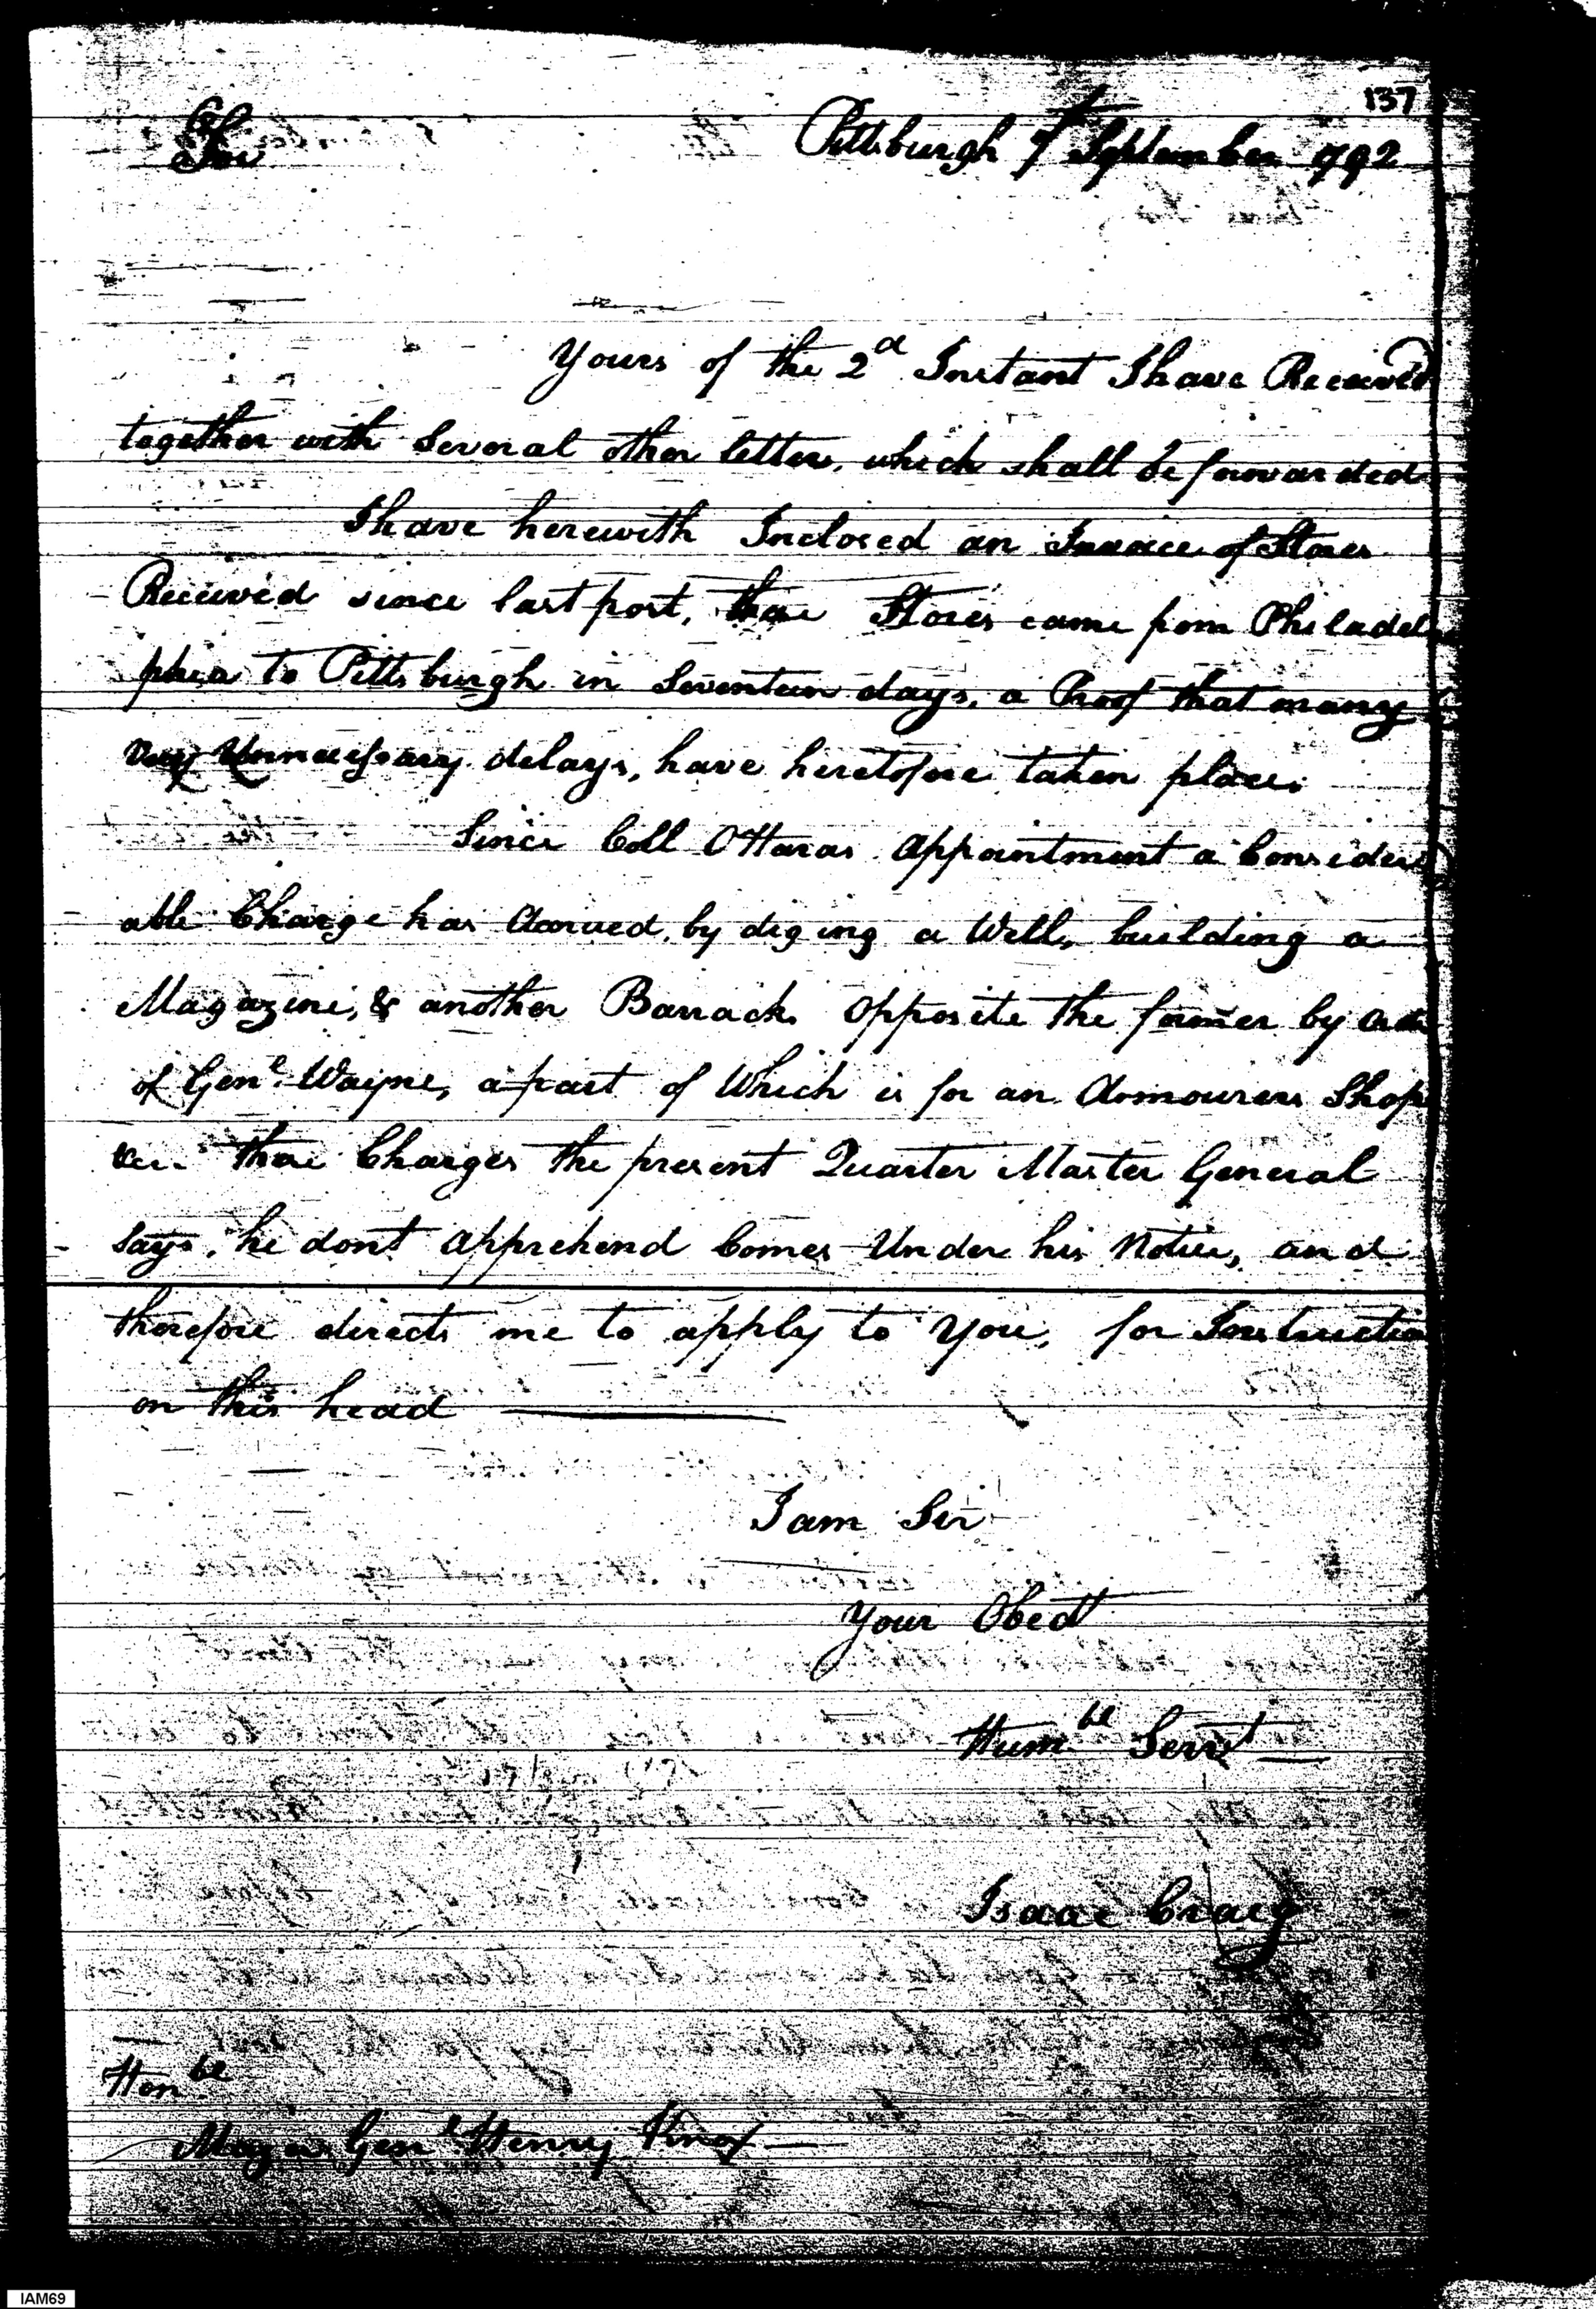 137
Sir
Pittsburgh 7 September 1792
Yours of the 2d Instant I have Received
together with Several other letters, which shall be forwarded
I have herewith Inclosed an Invoice of Stores
Received since last post, these Stores came from Philadel
phia to Pittsburgh in Seventeen days, a Proof that many
very Unnecessary delays, have heretofore taken place.
Since Coll OHaras appointment a Consider
able Charge has Accrued, by diging a Well, building a
Magazine, & another Barrack opposite the former by order
of Genl. Wayne, a part of Which is for an Armourers Shop
&c. these Charges the present Quarter Master General
Says, he dont apprehend Comes Under his Notice, and
therefore directs me to apply to You, for Instruction
on this head
I am Sir
Your Obedt
Humbl Servt
Isaac Craig
Honbl
Major Genl Henry Knox
IAM69